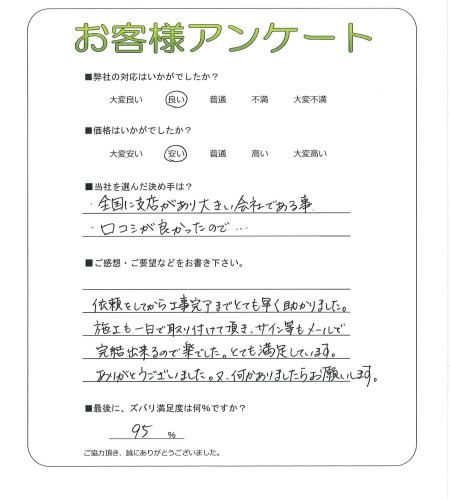 お客様アンケート
■弊社の対応はいかがでしたか?
大変良い 良い 普通 不満 大変不満
■価格はいかがでしたか?
大変安い 安い 普通 高い 大変高い
■当社を選んだ決め手は?
・全国に支店があり大きい会社である事.
・口コミが良かったので…
■ご感想・ご要望などをお書き下さい。
依頼をしてから工事完了までとても早く助かりました。
施工も一日で取り付けて頂き、サイン等もメールで
完結出来るので楽でした。とても満足しています。
ありがとうございました。又、何かありましたらお願いします。
■最後に、ズバリ満足度は何%ですか?
95 %
ご協力頂き、誠にありがとうございました。